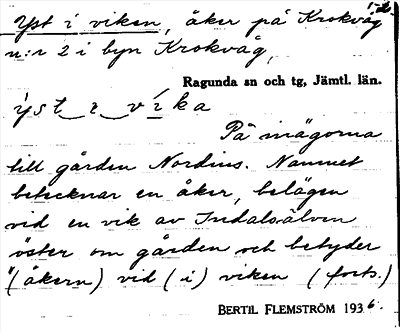 Yst i viken, åker på Krokvåg
n:r 2 i byn Krokvåg,
Ragunda sn och tg, Jämtl. län.
yst i vika
På inägorna
till gården Nordins. Namnet
betecknar en åker, belägen
vid en vik av Indalsälven
öster om gården och betyder
"(åkern) vid (i) viken (forts.)
BERTIL FLEMSTRÖM 1936.